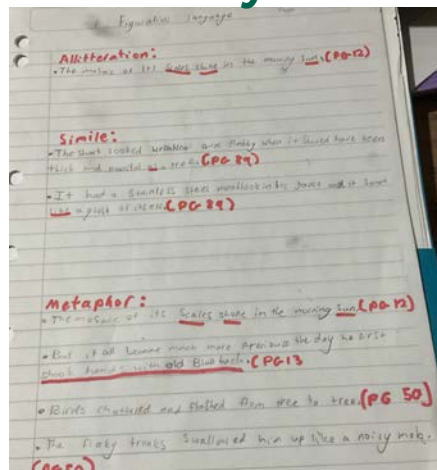 Figurative language
Allitteration:
• The mosaic of its Scales shone in the morning Sun. (PG 12)
Simile:
• The shark looked and flabby when it should have been
thick and powerful as a tree. (PG 89)
• It had a Stainless steel in its and it
like a of (PG 89)
Metaphor:
• The mosaic of its Scales shone in the morning Sun. (PG 12)
• But it all became much more precious the day he first
shook hands with old Blueback. (PG 13
• Birds chattered and flashed from tree to tree. (PG 50)
• The trunks Swallowed him up like a noisy mob.
(PG 50)